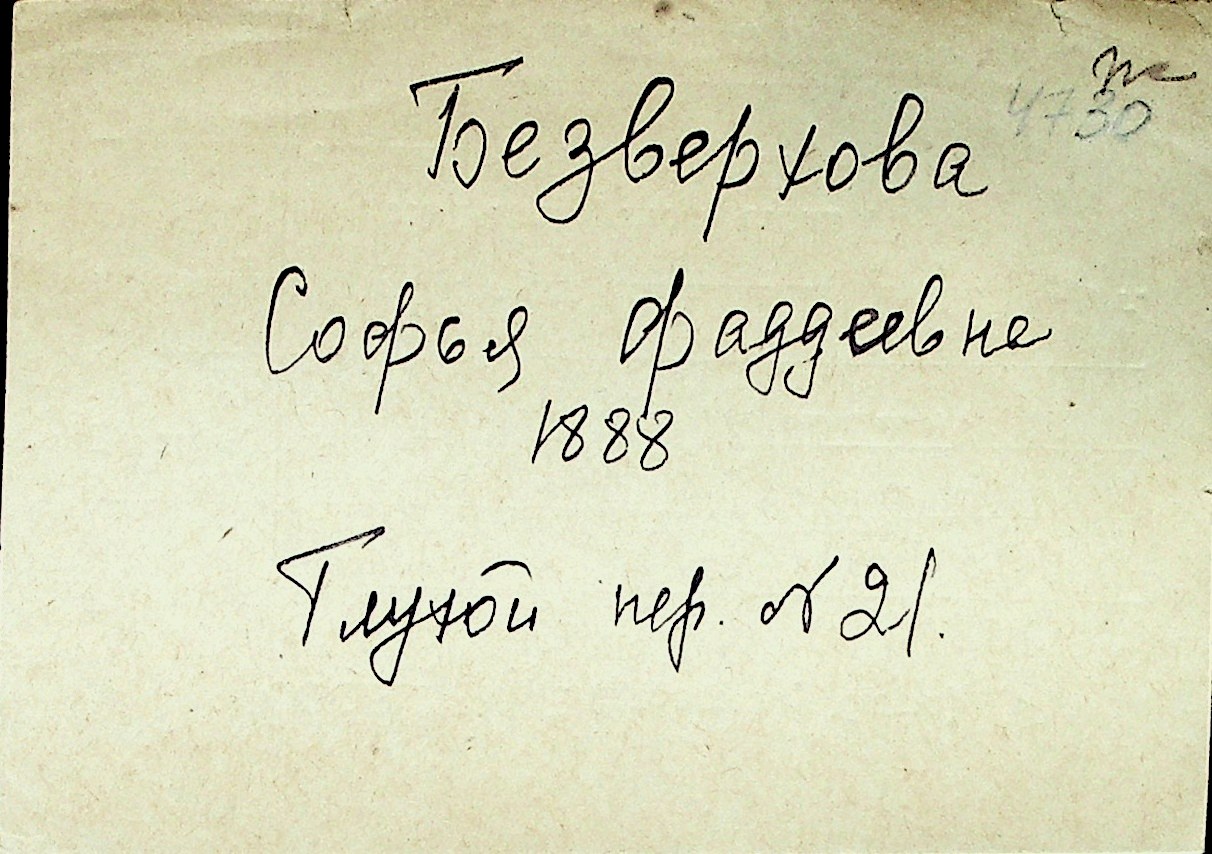 4730
Безверхова
Софья Фаддеевна
1888
Глухой пер. № 21.